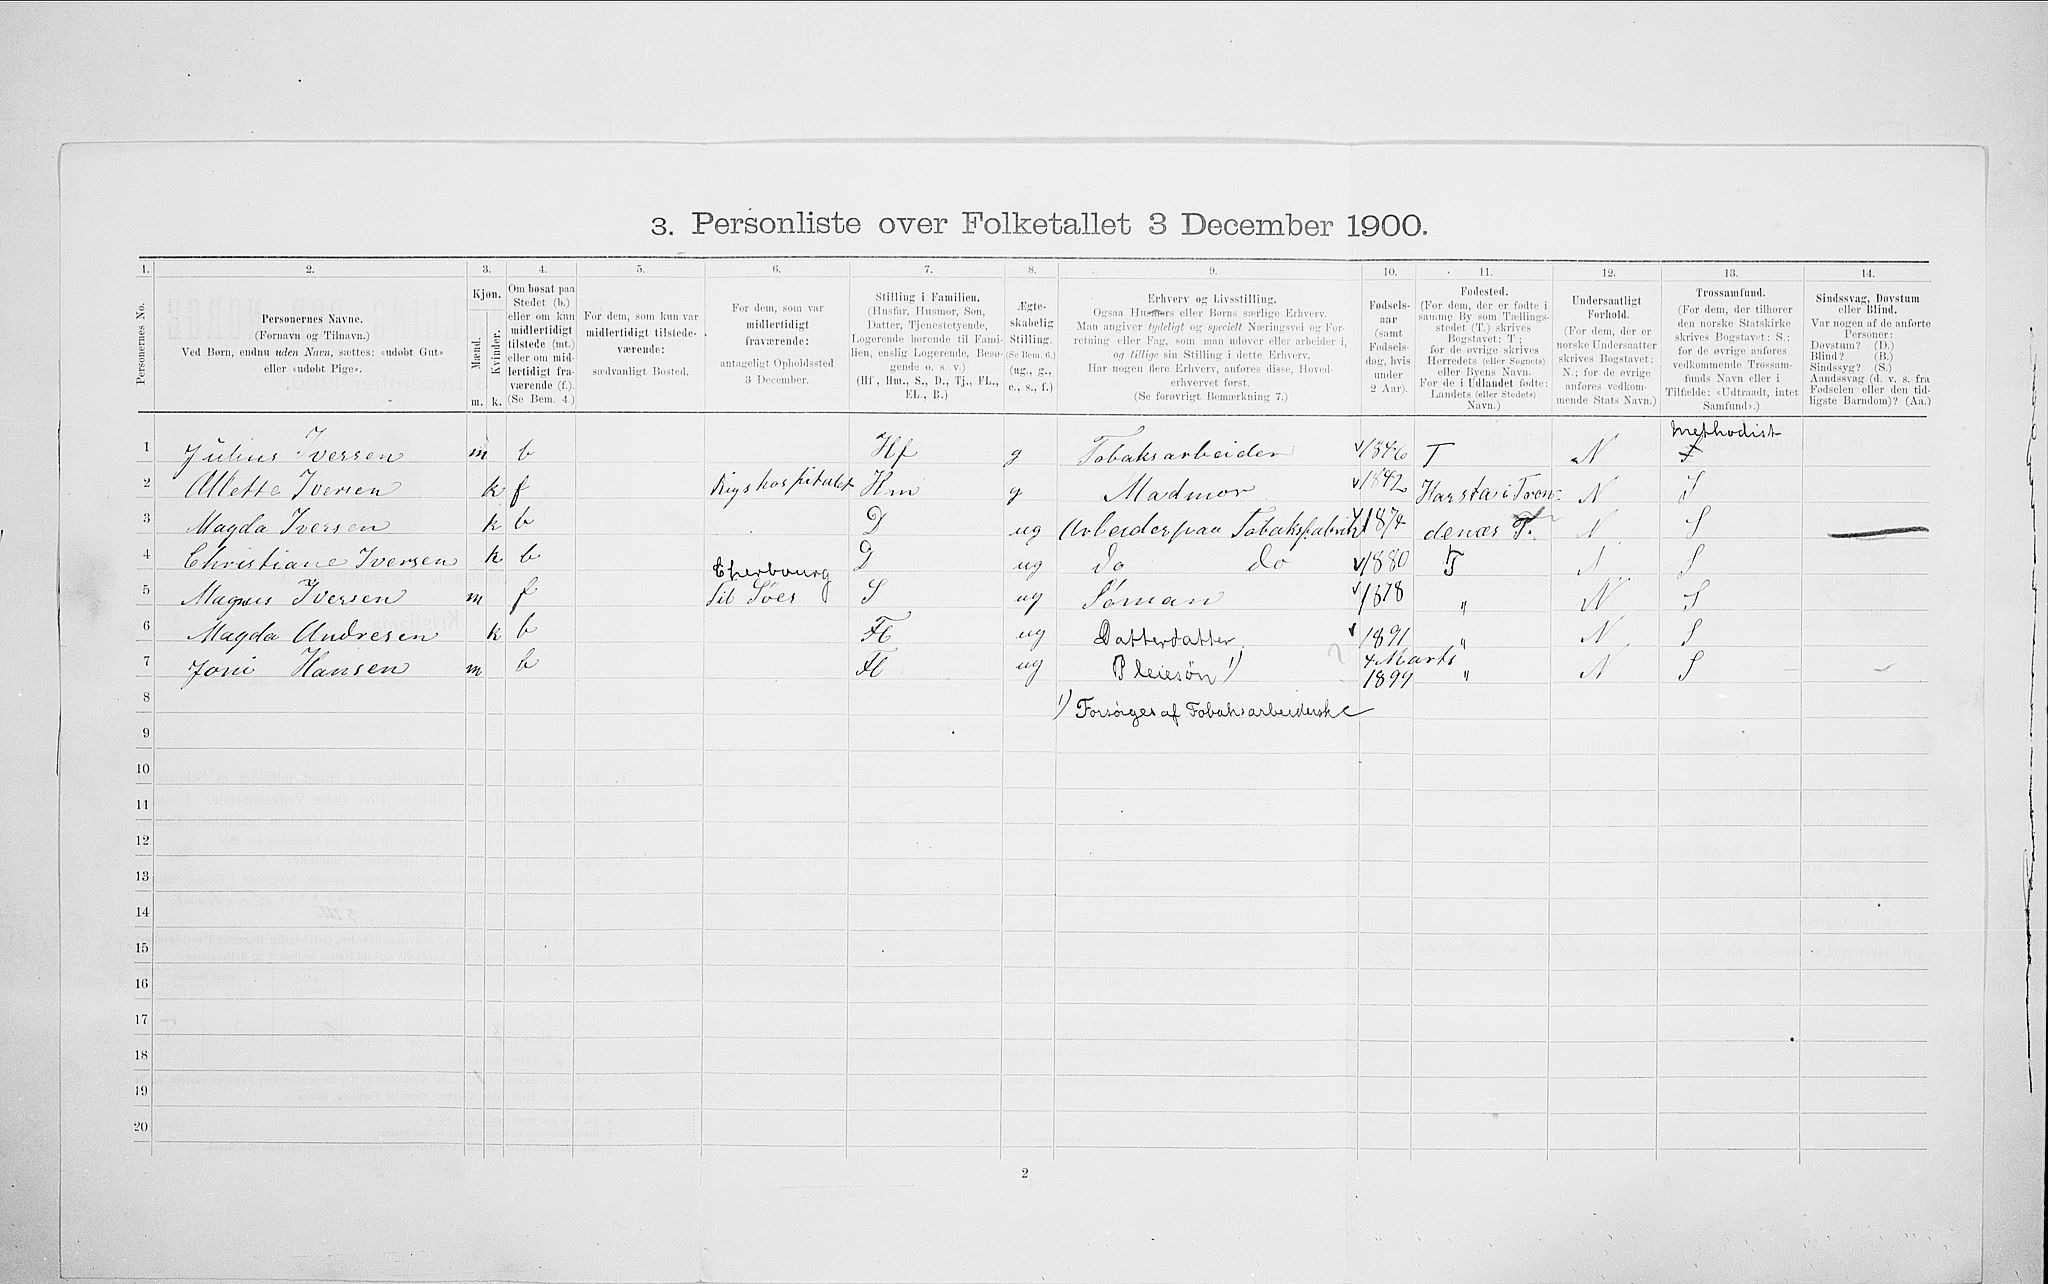 3. Personliste over Folketallet 3 December 1900.
1. 2. 3. 4. 5. 6. 7. 8. 9. 10. 11. 12. 13. 14.
Personernes No.
Personernes Navne.
(Fornavn og Tilnavn.)
Ved Børn, endnu uden Navn, sættes: «udøbt Gut»
eller «udøbt Pige».
Kjøn.
Mænd.
Kvinder.
m. k.
Om bosat paa
Stedet (b.)
eller om kun
midlertidigt
tilstede (mt.)
eller om mid-
lertidigt fra-
værende (f.).
(Se Bem. 4.)
For dem, som kun var
midlertidigt tilstede-
værende:
sædvanligt Bosted.
For dem, som var
midlertidigt
fraværende:
antageligt Opholdssted
3 December.
Stilling i Familien.
(Husfar, Husmor, Søn,
Datter, Tjenestetyende,
Logerende hørende til Fami-
lien, enslig Logerende, Besø-
gende o. s. v.)
(Hf, Hm., S., D., Tj., FL.,
EL., B.)
Ægte-
skabelig
Stilling.
(Se Bem. 6.)
(ug., g.,
e., s., f.)
Erhverv og Livsstilling.
Ogsaa Husmors eller Børns særlige Erhverv.
Man angiver tydeligt og specielt Næringsvei og For-
retning eller Fag, som man udøver eller arbeider i,
og tillige sin Stilling i dette Erhverv.
Har nogen flere Erhverv, anføres disse, Hoved-
erhvervet først.
(Se forøvrigt Bemærkning 7.)
Fødsels-
aar
(samt
Fødsels-
dag, hvis
under
2 Aar).
Fødested.
(For dem, der er fødte i
samme By som Tællings-
stedet (T.) skrives
Bogstavet: T;
for de øvrige skrives
Herredets (eller Sognets)
eller Byens Navn.
For de i Udlandet fødte:
Landets (eller Stedets)
Navn.)
Undersaatligt
Forhold.
(For dem, der er
norske Undersaatter
skrives Bogstavet:
N.; for de øvrige
anføres vedkom-
mende Stats Navn.)
Trossamfund.
(For dem, der tilhører
den norske Statskirke
skrives Bogstavet: S.;
for de øvrige anføres
vedkommende Trossam-
funds Navn eller i
Tilfælde: «Udtraadt, intet
Samfund».)
Sindssvag, Døvstum
eller Blind.
Var nogen af de anførte
Personer:
Døvstum? (D.)
Blind? (B.)
Sindssyg? (S.)
Aandssvag (d. v. s. fra
Fødselen eller den tid-
ligste Barndom)? (Aa.)
1 Julius Iversen m b Hf g Tobaksarbeider 1846 T N Methodist
2 Alette Iversen k f Rigshospitalet Hm g Madmor 1842 Harsta i Tron- N S
3 Magda Iversen k b D ug Arbeider paa Tobaksfabrik 1874 denæs T. N S
4 Christiane Iversen k b D ug do do 1880 T N S
5 Magnus Iversen m f Cherbourg til Søes S ug Søman 1878 " N S
6 Magda Andresen k b Fl ug Datterdatter 1891 " N S
7 Joni Hansen m b Fl ug Pleiesøn 1) 4 Marts 1899 " N S
8 1) Forsørges af Tobaksarbeiderske
9
10
11
12
13
14
15
16
17
18
19
20
2